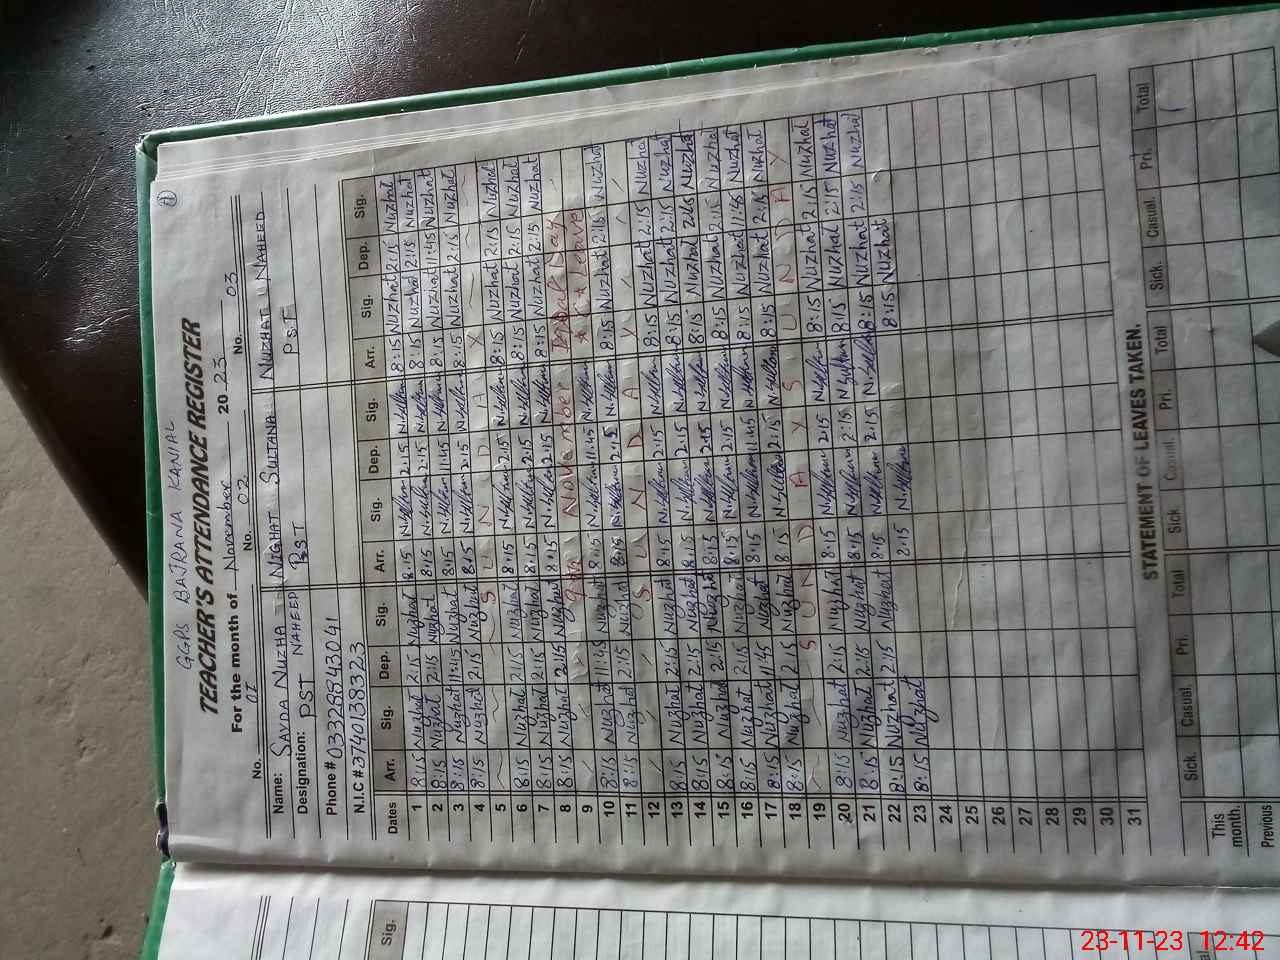 GGPS BAJRANA KANIAL
TEACHER'S ATTENDANCE REGISTER
For the month of November 2023
No. 01 No. 02 No. 03
Name: SAYDA NUZHAT NAHEED NIGHAT SULTANA NUZHAT NAHEED
Designation: PST PST PST
Phone # 03328843041
N.I.C #
Dates Arr. Sig. Dep. Sig. Arr. Sig. Dep. Sig. Arr. Sig. Dep. Sig.
1 8:15 Nuzhat 2:15 Nuzhat 8:15 N.Sultana 2:15 N.Sultana 8:15 Nuzhat 2:15 Nuzhat
2 8:15 Nuzhat 2:15 Nuzhat 8:15 N.Sultana 2:15 N.Sultana 8:15 Nuzhat 2:15 Nuzhat
3 8:15 Nuzhat 11:45 Nuzhat 8:15 N.Sultana 11:45 N.Sultana 8:15 Nuzhat 11:45 Nuzhat
4 8:15 Nuzhat 2:15 Nuzhat 8:15 N.Sultana 2:15 N.Sultana 8:15 Nuzhat 2:15 Nuzhat
5 S U N D A Y
6 8:15 Nuzhat 2:15 Nuzhat 8:15 N.Sultana 2:15 N.Sultana 8:15 Nuzhat 2:15 Nuzhat
7 8:15 Nuzhat 2:15 Nuzhat 8:15 N.Sultana 2:15 N.Sultana 8:15 Nuzhat 2:15 Nuzhat
8 8:15 Nuzhat 2:15 Nuzhat 8:15 N.Sultana 2:15 N.Sultana 8:15 Nuzhat 2:15 Nuzhat
9 9th November Iqbal Day
Leave
10 8:15 Nuzhat 11:45 Nuzhat 8:15 N.Sultana 11:45 N.Sultana
11 8:15 Nuzhat 2:15 Nuzhat 8:15 N.Sultana 2:15 N.Sultana 8:15 Nuzhat 2:15 Nuzhat
12 S U N D A Y
13 8:15 Nuzhat 2:15 Nuzhat 8:15 N.Sultana 2:15 N.Sultana 8:15 Nuzhat 2:15 Nuzhat
14 8:15 Nuzhat 2:15 Nuzhat 8:15 N.Sultana 2:15 N.Sultana 8:15 Nuzhat 2:15 Nuzhat
15 8:15 Nuzhat 2:15 Nuzhat 8:15 N.Sultana 2:15 N.Sultana 8:15 Nuzhat 2:15 Nuzhat
16 8:15 Nuzhat 2:15 Nuzhat 8:15 N.Sultana 2:15 N.Sultana 8:15 Nuzhat 2:15 Nuzhat
17 8:15 Nuzhat 11:45 Nuzhat 8:15 N.Sultana 11:45 N.Sultana 8:15 Nuzhat 11:45 Nuzhat
18 8:15 Nuzhat 2:15 Nuzhat 8:15 N.Sultana 2:15 N.Sultana 8:15 Nuzhat 2:15 Nuzhat
19 S U N D A Y S U N D A Y
20 8:15 Nuzhat 2:15 Nuzhat 8:15 N.Sultana 2:15 N.Sultana 8:15 Nuzhat 2:15 Nuzhat
21 8:15 Nuzhat 2:15 Nuzhat 8:15 N.Sultana 2:15 N.Sultana 8:15 Nuzhat 2:15 Nuzhat
22 8:15 Nuzhat 2:15 Nuzhat 8:15 N.Sultana 2:15 N.Sultana 8:15 Nuzhat 2:15 Nuzhat
23 8:15 Nuzhat 8:15 N.Sultana 8:15 Nuzhat
24
25
26
27
28
29
30
31
STATEMENT OF LEAVES TAKEN.
Sick. Casual. Pri. Total Sick. Casual. Pri. Total Sick. Casual. Pri. Total
This month. 1
Previous
Sig.
23-11-23 12:42